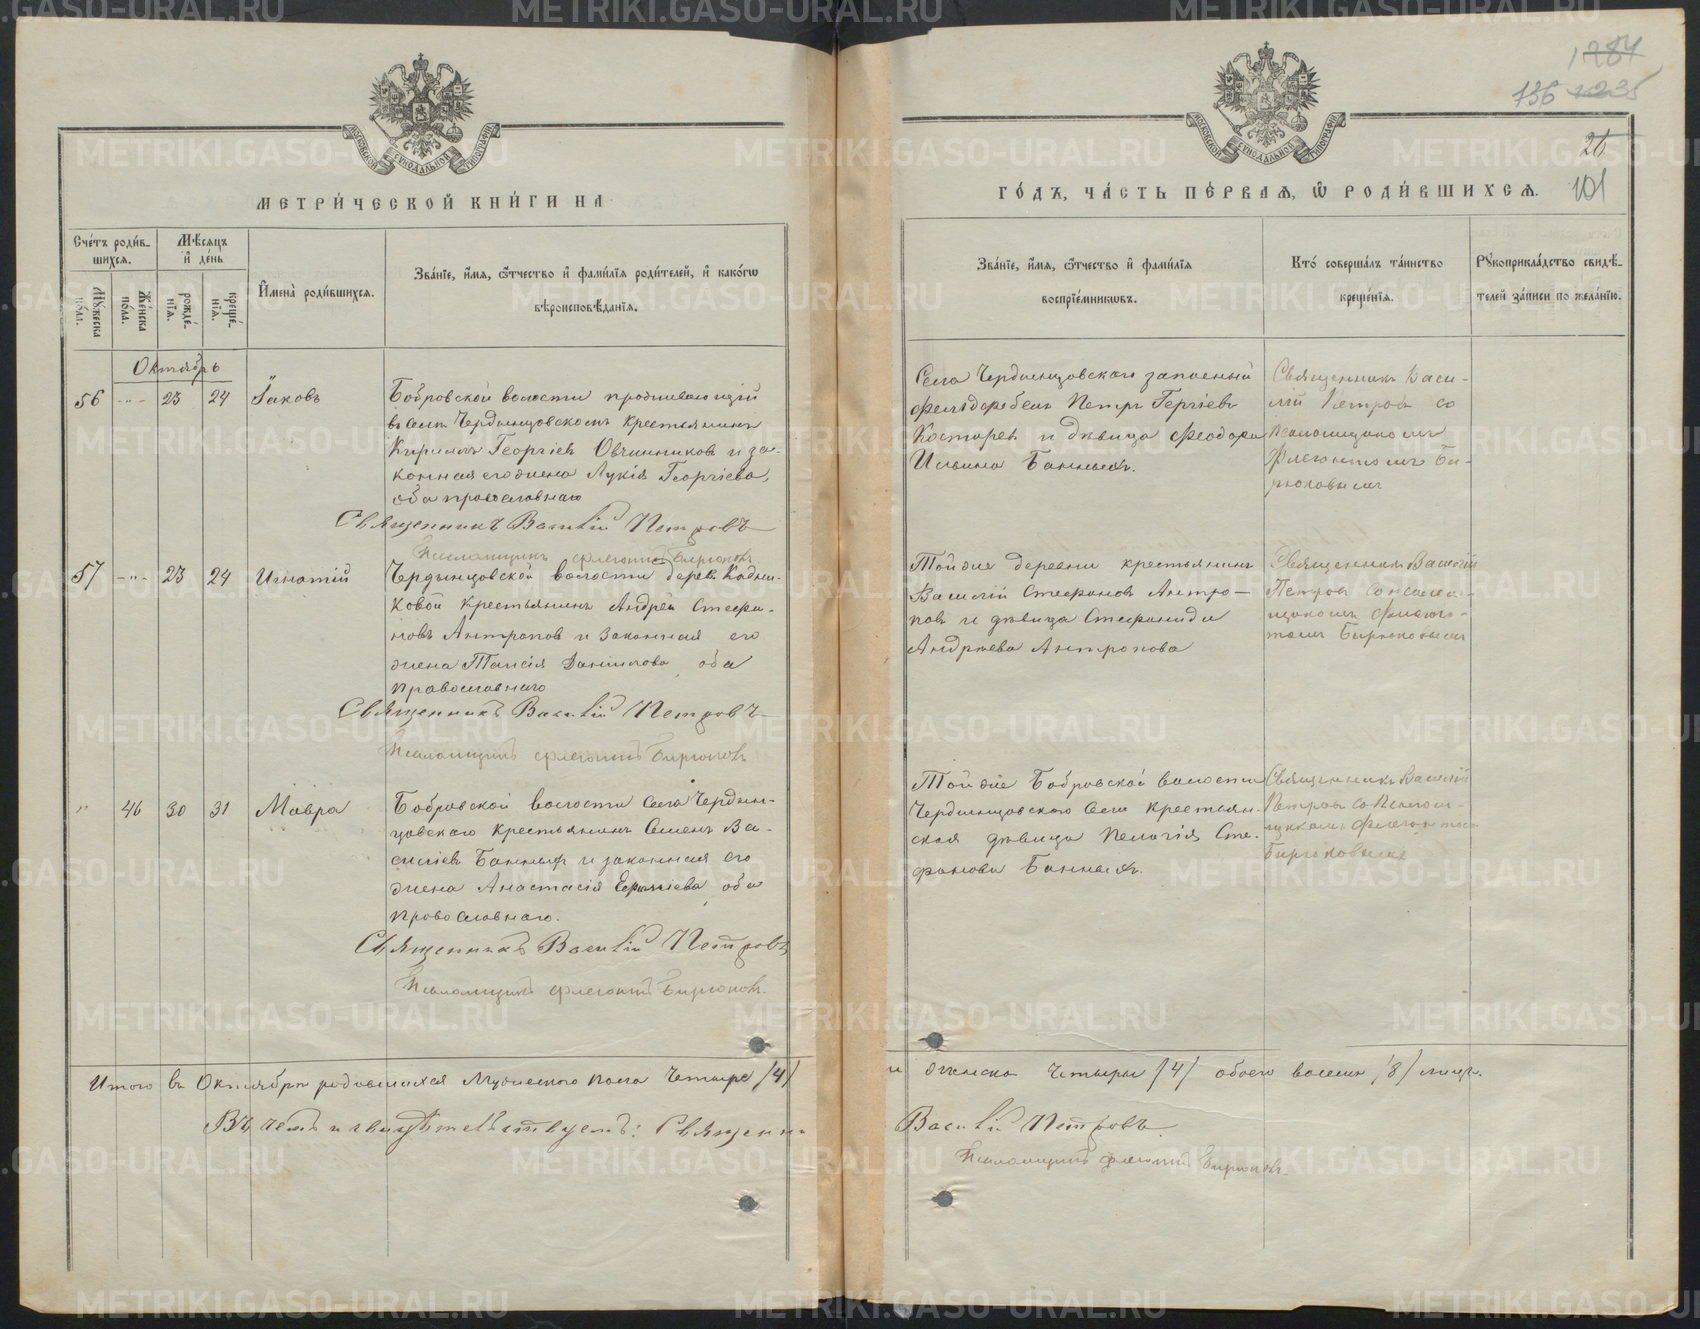 1284
136 1235
26
101
МОСКОВСКОЙ СѴНОДАЛЬНОЙ ТИПОГРАФІИ
МОСКОВСКОЙ СѴНОДАЛЬНОЙ ТИПОГРАФІИ
МЕТРИ́ЧЕСКОЙ КНИ́ГИ НА
ГО́ДЪ, ЧА́СТЬ ПЕ́РВАЯ, Ѡ РОДИ́ВШИХСЯ.
Сче́тъ роди́в-
шихся.
Мѣ́сяцъ
и҆ день
Мꙋ́жеска
по́ла.
Же́нска
по́ла.
рожде́-
нїя.
креще́-
нїя.
И҆мена̀ роди́вшихся.
Зва́нїе, и҆́мя, ѻ҆́тчество и҆ фами́лїя роди́телей, и҆ како́гѡ
вѣроисповѣ́данїя.
Зва́нїе, и҆́мя, ѻ҆́тчество и҆ фами́лїя
воспрїе́мникѡвъ.
Кто̀ соверша́лъ та́инство
креще́нїя.
Рꙋкоприкла́дство свидѣ́-
телей за́писи по жела́нїю.
Октябрь
56 -"- 23 24 Іаковъ
Бобровской волости проживающій
въ селѣ Чердынцовскомъ крестьянинъ
Кириллъ Георгіевъ Овчинниковъ и за-
конная его жена Лукія Георгіева,
оба православнаго
Священникъ Василій Петровъ
Псаломщикъ Флегонтъ Бирюковъ
Села Чердынцовскаго запасный
фельдфебель Петръ Гергіевъ
Костаревъ и дѣвица Феодора
Ильина Банныхъ.
Священникъ Васи-
лій Петровъ со
псаломщикомъ
Флегонтомъ Би-
рюковымъ
57 -"- 23 24 Игнатій
Чердынцовской волости дерев. Кадни-
ковой крестьянинъ Андрей Стефа-
новъ Антроповъ и законная его
жена Таисія Данилова, оба
православнаго
Священникъ Василій Петровъ
Псаломщикъ Флегонтъ Бирюковъ
Той же деревни крестьянинъ
Василій Стефановъ Антро-
повъ и дѣвица Стефанида
Андреева Антропова
Священникъ Василій
Петровъ со псалом-
щикомъ Флегон-
томъ Бирюковымъ
" 46 30 31 Мавра
Бобровской волости села Чердын-
цовскаго крестьянинъ Семенъ Ва-
силіевъ Банныхъ и законная его
жена Анастасія оба
православнаго.
Священникъ Василій Петровъ
Псаломщикъ Флегонтъ Бирюковъ.
Той же Бобровской волости
Чердынцовскаго села крестьян-
ская дѣвица Пелагія Сте-
фанова Банныхъ.
Священникъ Василій
Петровъ со псалом-
щикомъ Флегонтомъ
Бирюковымъ
Итого въ Октябрѣ родившихся мужескаго пола четыре /4/
и женска четыре /4/ обоего восемь /8/ лицъ.
Въ чемъ и свидѣтельствуемъ: Священни
Василій Петровъ.
Псаломщикъ Флегонтъ Бирюковъ.
METRIKI.GASO-URAL.RU